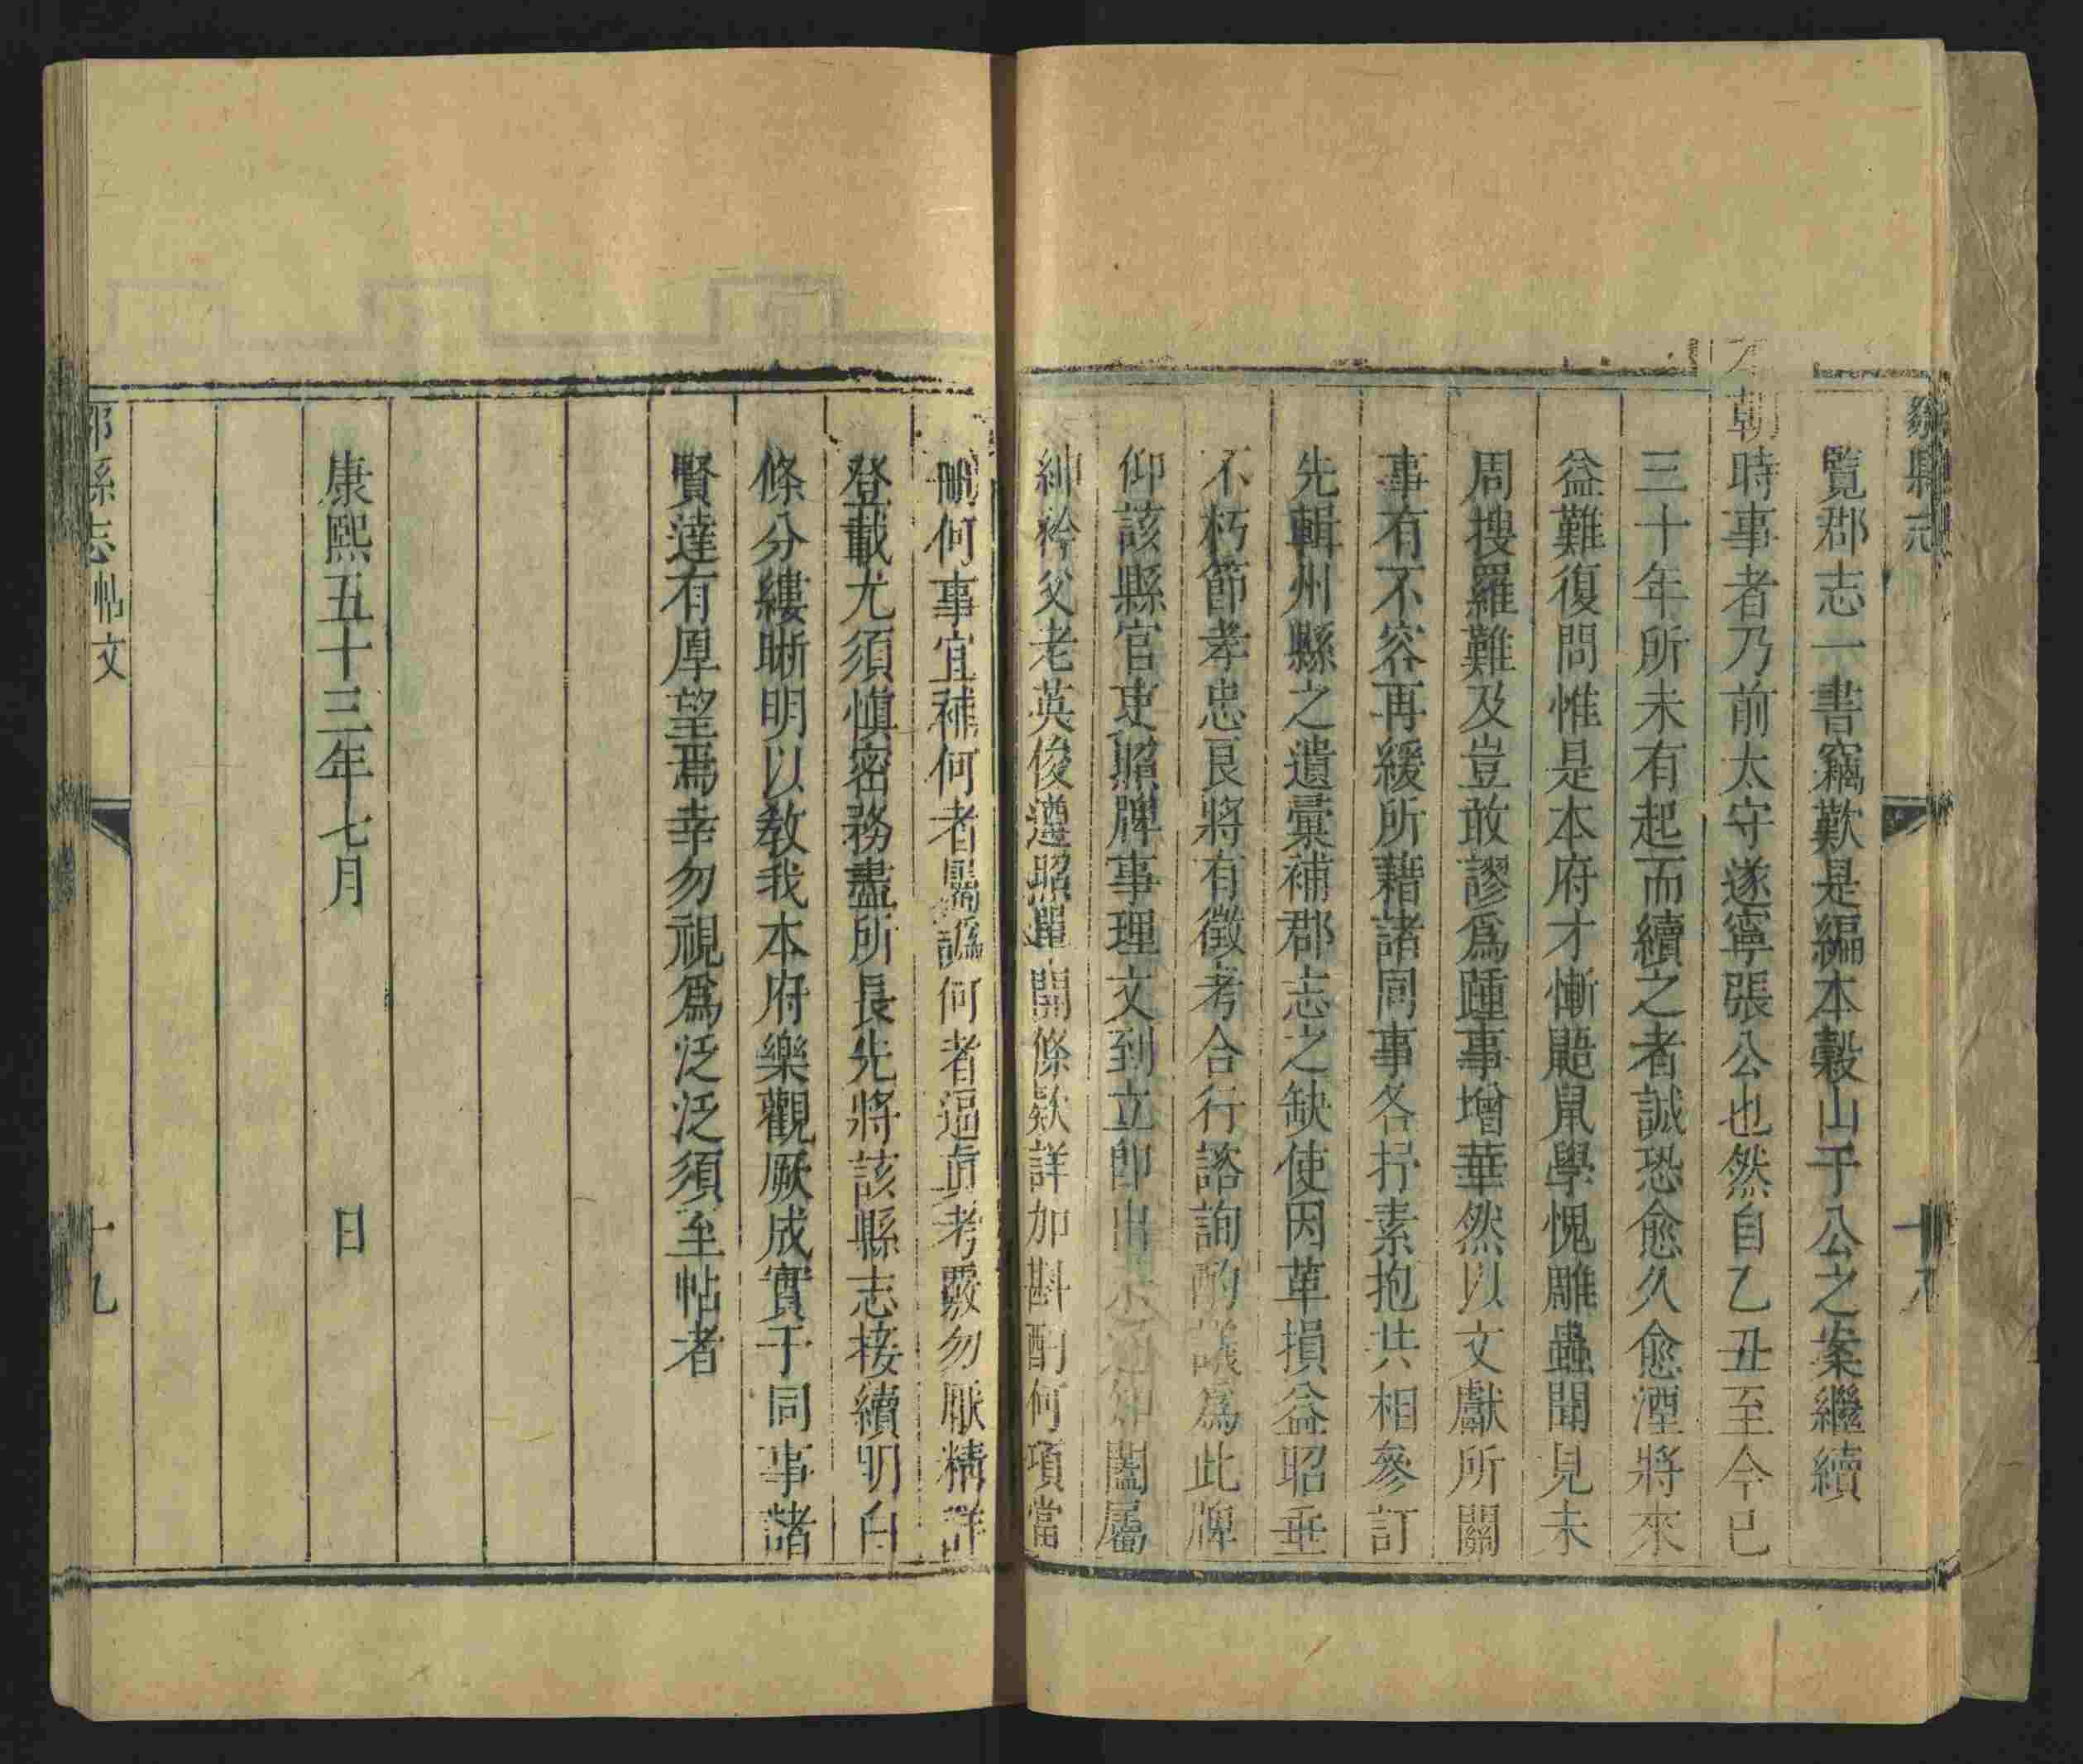 縣志
十九
覽郡志一書竊歎是編本穀山于公之案繼續
本朝時事者乃前太守遂寧張公也然自乙丑至今已
三十年所未有起而續之者誠恐愈久愈湮將來
益難復問惟是本府才慚鼯鼠學愧雕蟲聞見未
周搜羅難及豈敢謬爲踵事增華然以文獻所關
事有不容再緩所藉諸同事各抒素抱共相參訂
先輯州縣之遺彙補郡志之缺使因革損益昭垂
不朽節孝忠良將有徵考合行諮詢酌議爲此牌
仰該縣官吏照牌事理文到立即出示通知闔屬
紳衿父老英俊遵照單開條欵詳加斟酌何項當
刪何事宜補何者屬譌何者逼眞考覈勿厭精詳
登載尤須愼密務盡所長先將該縣志接續明白
條分縷晰明以敎我本府樂觀厥成實于同事諸
賢達有厚望焉幸勿視爲泛泛須至帖者
康熙五十三年七月　日
縣志 帖文
十九